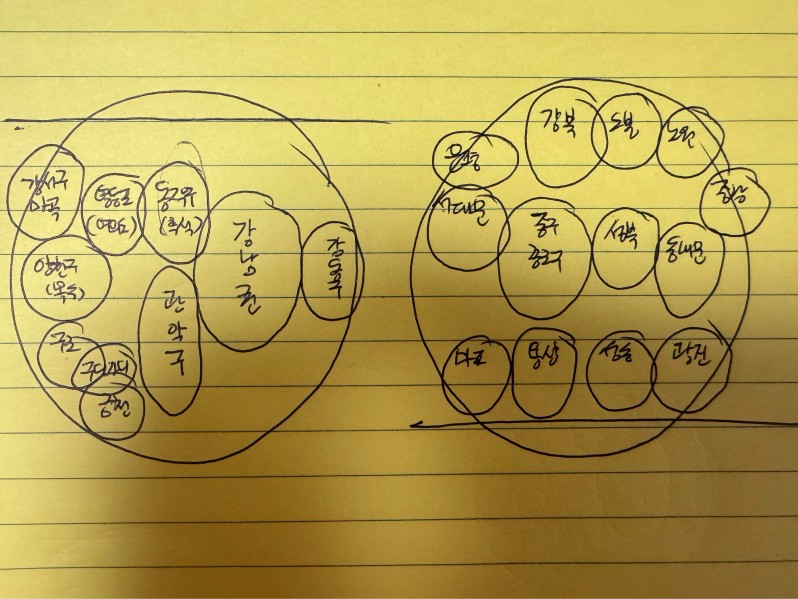 강서구
마곡
영등포
(여의도)
동작구
(흑석)
강남권
강동구
양천구
(목동)
관악구
구로
구디가디
금천
강북
도봉
노원
은평
중랑
서대문
중구
종로구
성북
동대문
마포
용산
성동
광진